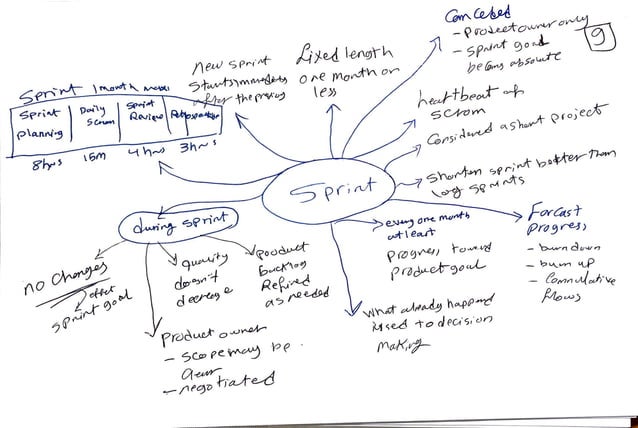 Sprint 1 month max
Sprint
planning
Daily
Scrum
Sprint
Review
Retrospective
8hrs
15m
4hrs
3hrs
New sprint
starts immediately
after the previous
Lixed length
one month or
less
Canceled
- product owner only
- sprint goal
9
heartbeat of
scrum
Considered a short project
Shorten sprint better than
long sprints
Sprint
during sprint
no changes
effect
sprint goal
quality
doesn't
decrease
product
backlog
Refined
as needed
Product owner
- scope may be
- negotiated
every one month
at least
progress toward
product goal
Forcast
progress,
- burn down
- burn up
- Commulative
flows
What already happend
used to decision
making